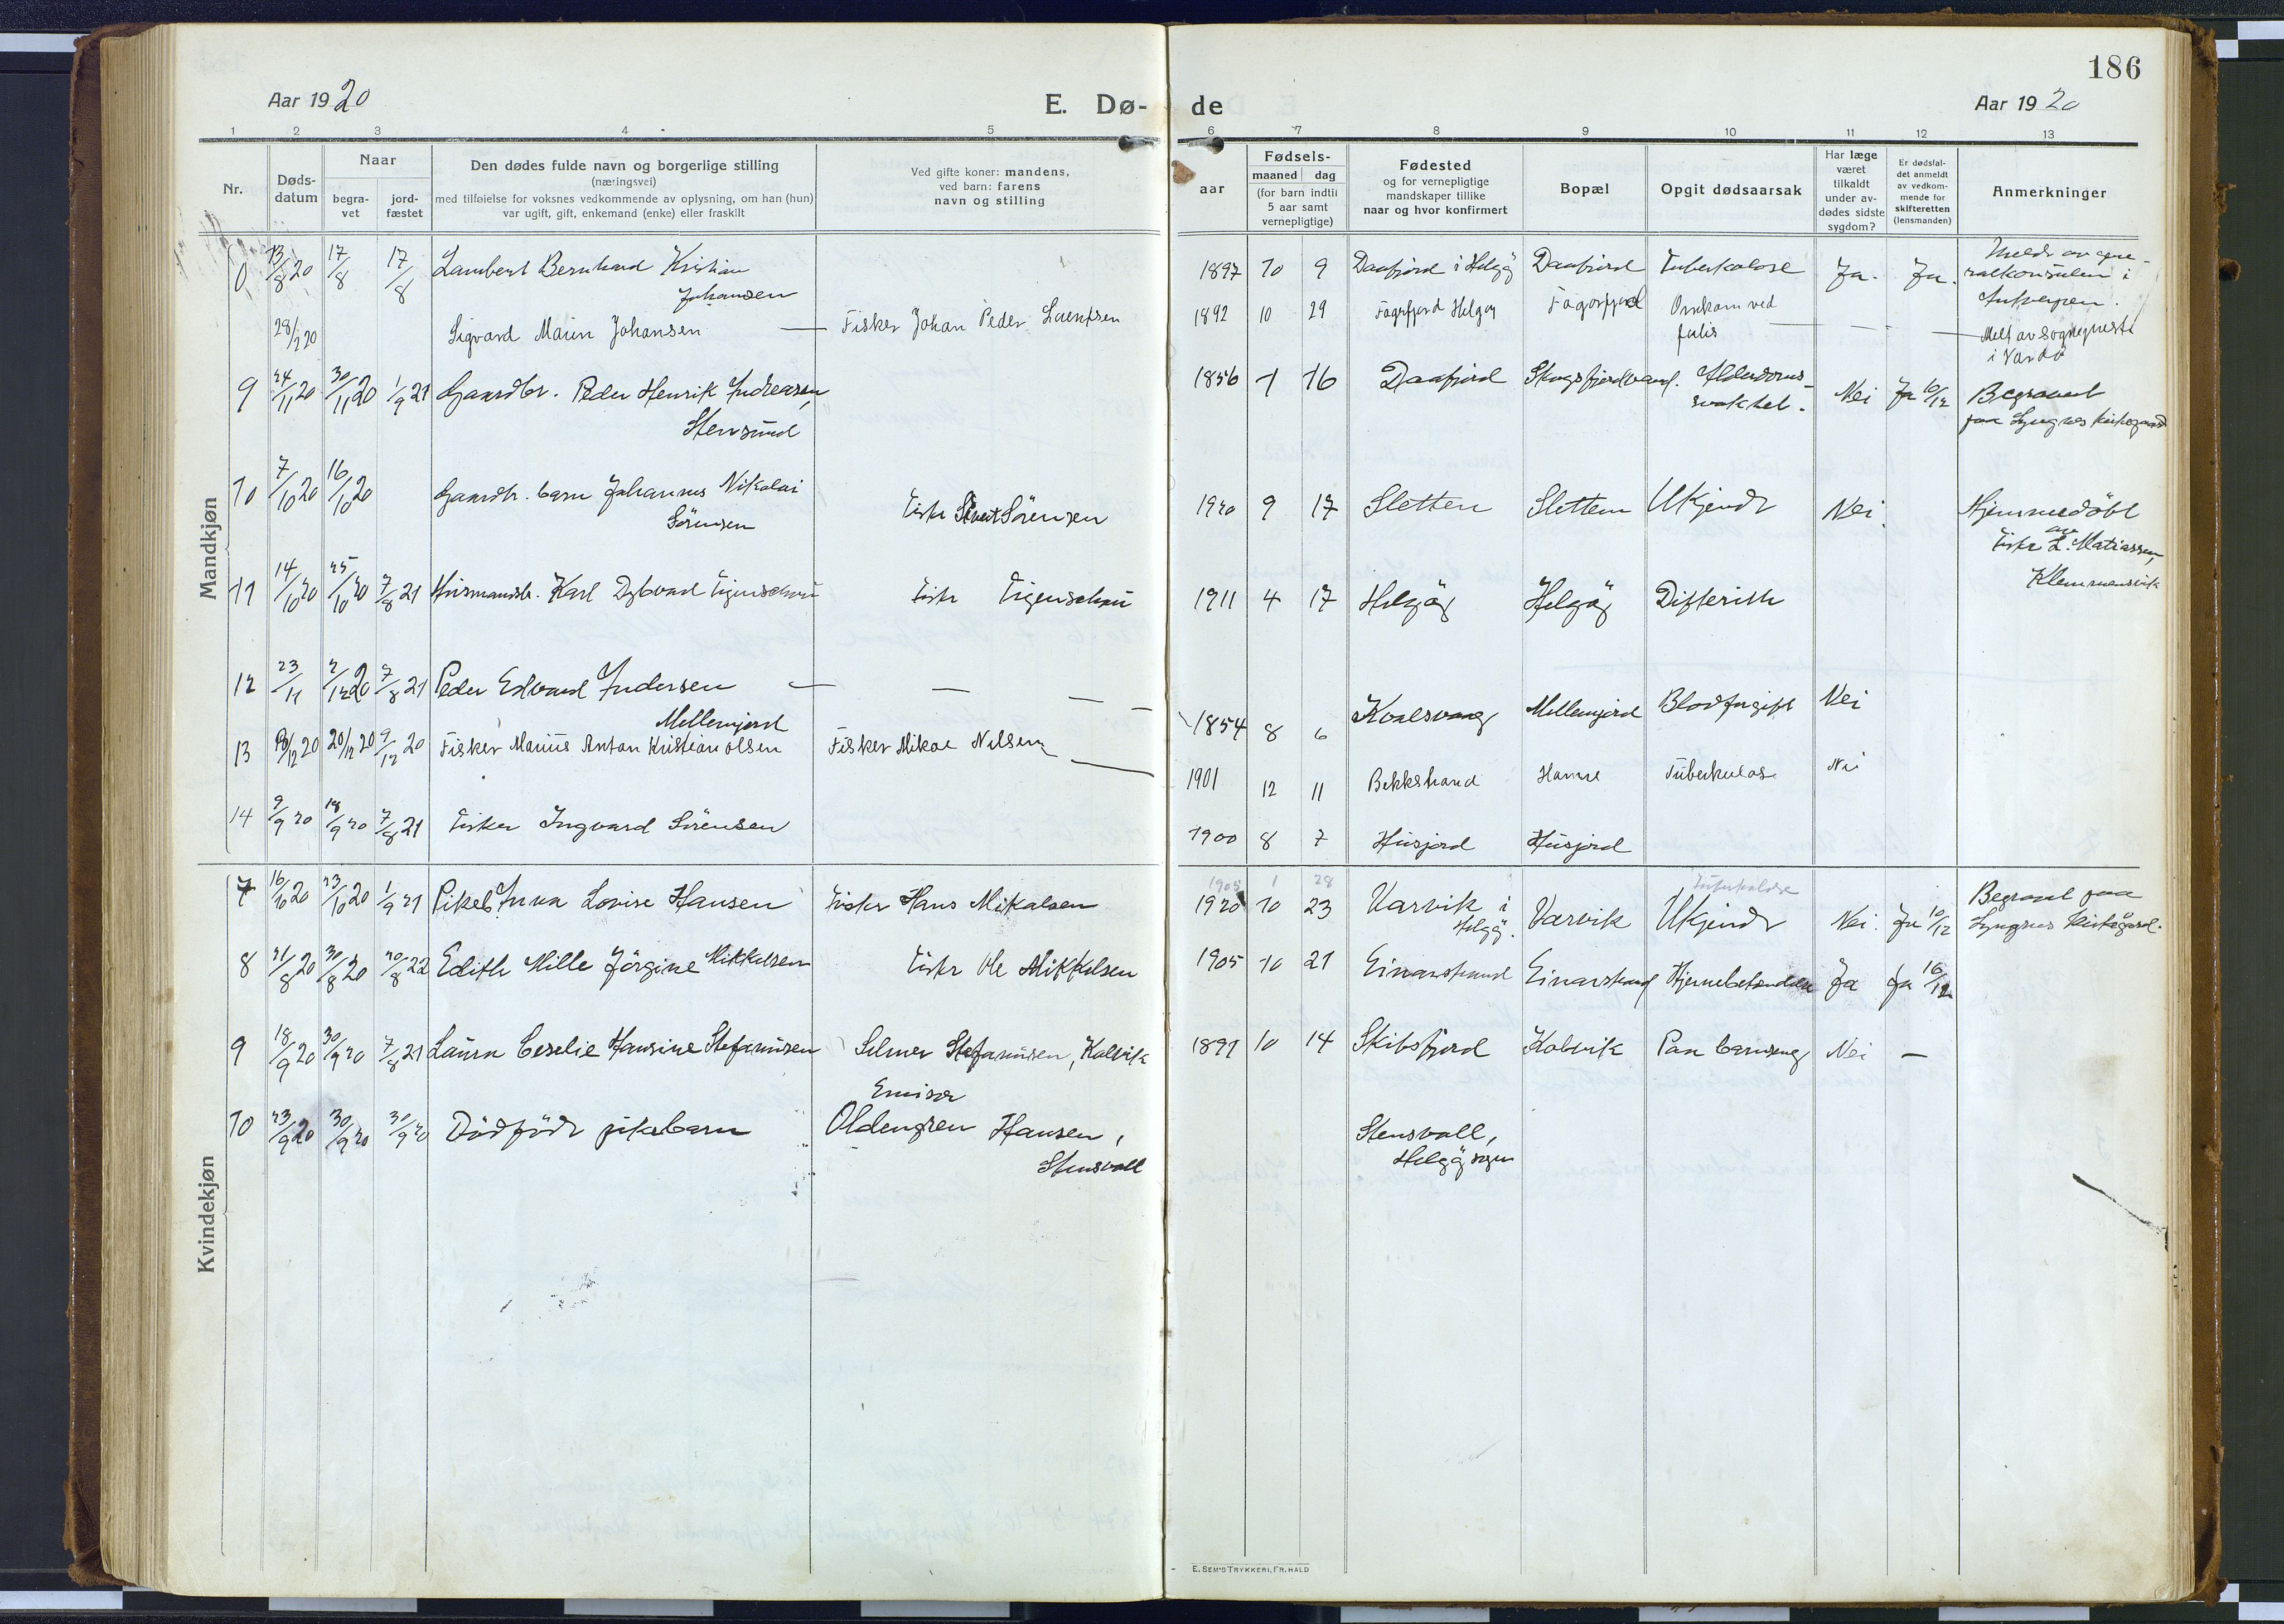 186
Aar 1920
E. Dø-
de
Aar 1920
1 2 3 4 5 6 7 8 9 10 11 12 13
Nr.
Døds-
datum
Naar
begra-
vet
jord-
fæstet
Den dødes fulde navn og borgerlige stilling
(næringsvei)
med tilføielse for voksnes vedkommende av oplysning, om han (hun)
var ugift, gift, enkemand (enke) eller fraskilt
Ved gifte koner: mandens,
ved barn: farens
navn og stilling
aar
Fødsels-
maaned dag
(for barn indtil
5 aar samt
vernepligtige)
Fødested
og for vernepligtige
mandskaper tillike
naar og hvor konfirmert
Bopæl
Opgit dødsaarsak
Har læge
været
tilkaldt
under av-
dødes sidste
sygdom?
Er dødsfal-
det anmeldt
av vedkom-
mende for
skifteretten
(lensmanden)
Anmerkninger
Mandkjøn
0 13/8 20 17/8 17/8 Lambert Bernhard Kristian
Johansen
1897 10 9 Daafjord i Helgøy Daafjord Tuberkulose Ja. Ja.
28/2 20 Sigvard Marin Johansen — Fisker Johan Peder Lorentsen 1892 10 29 Fagerfjord Helgøy Fagerfjord Omkom ved
forlis
Melt av Sogneprest
i Vardø
9 24/11 20 30/11 20 1/9 21 Gaardbr. Peder Henrik Andreasen,
Stensund
1856 1 16 Daafjord Skogsfjordvand. Alderdoms-
svakhet.
Nei Ja 16/12 Begravet
paa Lyngnes kirkegaard
10 7/10 20 16/10 20 Gaardbr. barn Johannes Nikolai
Sörensen
Fisker Sivert Sörensen 1920 9 17 Sletten Sletten Ukjendt Nei. Hjemmedöbt
av
Fisker L. Matiassen,
Klemmensvik
11 14/10 20 25/10 20 7/8 21 Husmandsb. Karl Dybvard Figenschau Fisker Figenschau 1911 4 17 Helgøy Helgøy Difterith
12 23/11 2/12 20 7/8 21 Peder Edvard Andersen — — — —
Mellemjord
1854 8 6 Kvalsvaag Mellemjord Blodforgift Nei
13 /12 20 20/12 20 9/12 20 Fisker Marius Anton Kristian Olsen Fisker Mikal Nilsen — 1901 12 11 Bekkstrand Hamre Tuberkulos Nei
14 9/9 20 18/9 20 7/8 21 Fisker Ingvard Sörensen 1900 8 7 Husjord Husjord
Kvindekjøn
1905 1 28 Tuberkulose
7 16/10 20 23/10 20 1/9 21 Pikeb. Anna Lovise Hansen Fisker Hans Mikalsen 1920 10 23 Vasvik i
Helgøy.
Vasvik Ukjendt Nei. Ja 10/12 Begravet paa
Lyngnes kirkegaard.
8 21/8 20 30/8 20 20/8 22 Edith Mille Jörgine Mikkelsen Fisker Ole Mikkelsen 1905 10 21 Einarstrand Einarstrand Hjernebetændelse Ja Ja 16/12
9 18/9 20 30/9 20 7/8 21 Laura Ceselie Hansine Stefanusen Selmer Stefanusen, Kalvik 1897 10 14 Skibsfjord Kalvik Paa barseng Nei —
Emisær
10 23/9 20 30/9 20 30/9 20 Dödfödt pikebarn Oldengren Hansen,
Stensvoll
Stensvoll,
Helgøy sogn
E. SEM'S TRYKKERI, FR. HALD